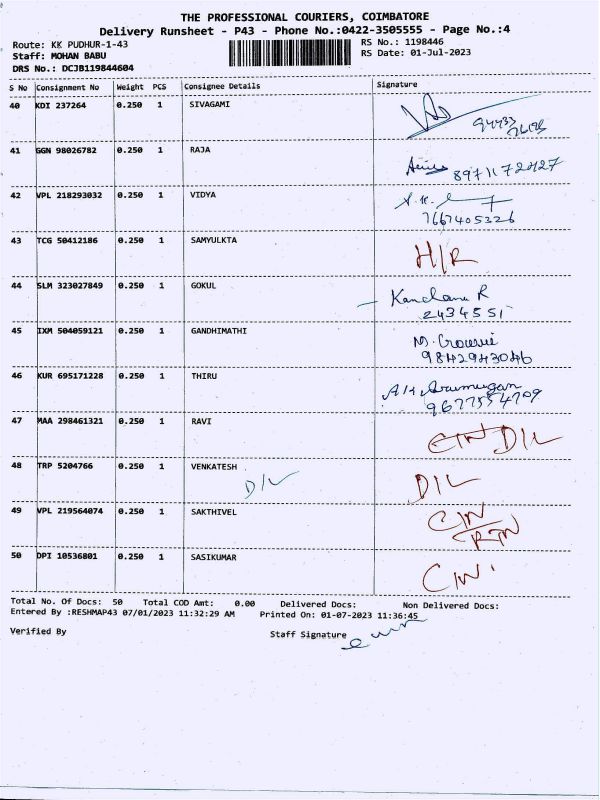 THE PROFESSIONAL COURIERS, COIMBATORE
Delivery Runsheet - P43 - Phone No.:0422-3505555 - Page No.:4
Route: KK PUDHUR-1-43
RS No.: 1198446
Staff: MOHAN BABU
RS Date: 01-Jul-2023
DRS No.: DCJB119844604
S No Consignment No Weight PCS Consignee Details Signature
40 KDI 237264 0.250 1 SIVAGAMI
94433
76195
41 GGN 98026782 0.250 1 RAJA
8971172427
42 VPL 218293032 0.250 1 VIDYA
7667405326
43 TCG 50412186 0.250 1 SAMYULKTA
H/R
44 SLM 323027849 0.250 1 GOKUL
Kanchana R
2434551
45 IXM 504059121 0.250 1 GANDHIMATHI
M. Gowrie
9842943046
46 KUR 695171228 0.250 1 THIRU
Arumugan
9677554709
47 MAA 298461321 0.250 1 RAVI
D/L
48 TRP 5204766 0.250 1 VENKATESH
D/L D/L
49 VPL 219564074 0.250 1 SAKTHIVEL
C/N
RTN
50 DPI 10536801 0.250 1 SASIKUMAR
C/N
Total No. Of Docs: 50 Total COD Amt: 0.00 Delivered Docs: Non Delivered Docs:
Entered By :RESHMAP43 07/01/2023 11:32:29 AM Printed On: 01-07-2023 11:36:45
Verified By Staff Signature